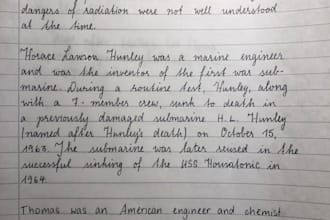 dangers of radiation were not well understood
at the time.
Horace Lawson Hunley was a marine engineer
and was the inventor of the first war sub-
marine. During a routine test, Hunley, along
with a 7-member crew, sunk to death in
a previously damaged submarine H. L. Hunley
(named after Hunley's death) on October 15,
1963. The submarine was later reused in the
sucessful sinking of the USS Housatonic in
1964.
Thomas was an American engineer and chemist